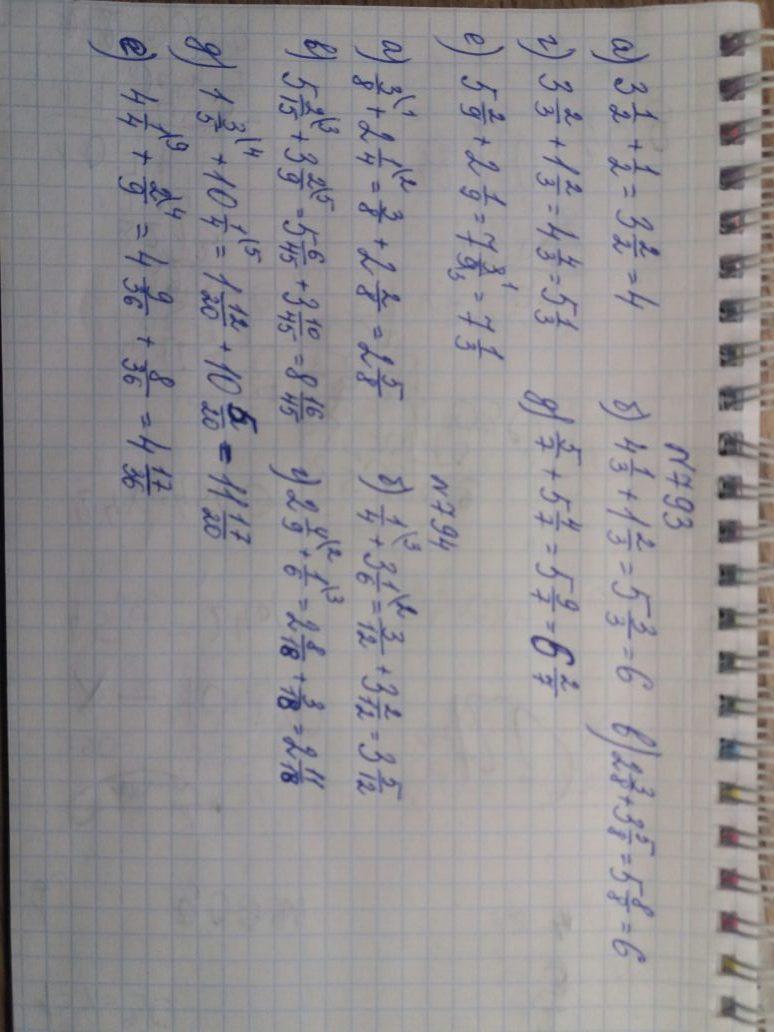 N793
а) 3 1/2 + 1/2 = 3 2/2 = 4 б) 4 1/3 + 1 2/3 = 5 3/3 = 6 в) 2 3/8 + 3 5/8 = 5 8/8 = 6
г) 3 2/3 + 1 2/3 = 4 4/3 = 5 1/3 д) 5/7 + 5 4/7 = 5 9/7 = 6 2/7
е) 5 2/9 + 2 1/9 = 7 3\1/9\3 = 7 1/3
N794
а) 3\1/8 + 2 1\2/4 = 3/8 + 2 2/8 = 2 5/8 б) 1\3/4 + 3 1\2/6 = 3/12 + 3 2/12 = 3 5/12
в) 5 2\3/15 + 3 2\5/9 = 5 6/45 + 3 10/45 = 8 16/45 г) 2 4\2/9 + 1\3/6 = 2 8/18 + 3/18 = 2 11/18
д) 1 3\4/5 + 10 1\5/4 = 1 12/20 + 10 5/20 = 11 17/20
е) 4 1\9/4 + 2\4/9 = 4 9/36 + 8/36 = 4 17/36